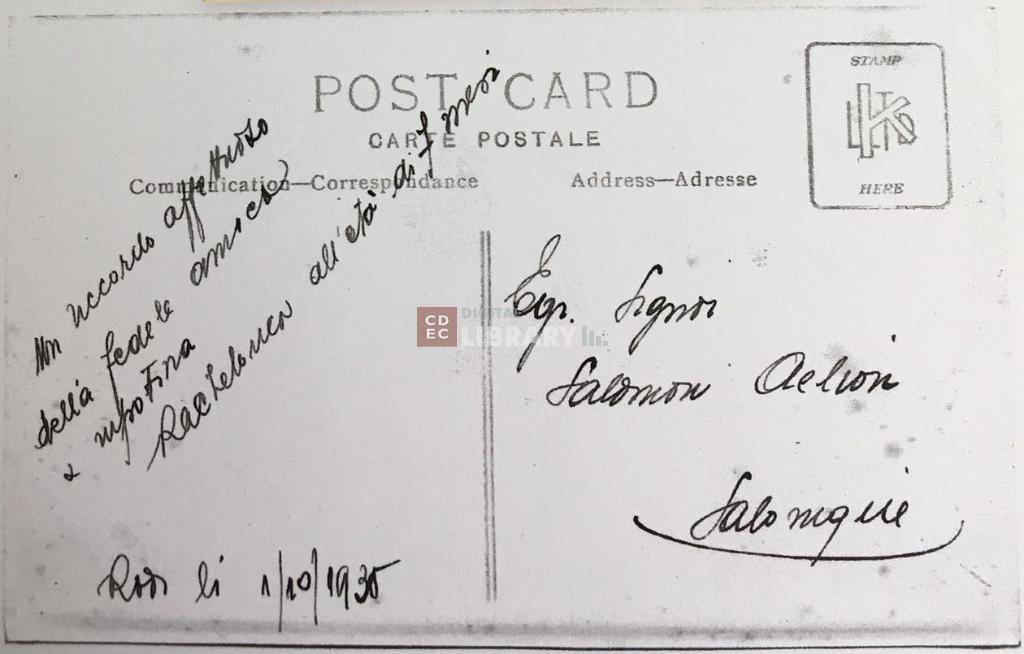 POST CARD
CARTE POSTALE
Communication—Correspondance
Address—Adresse
STAMP
HERE
Un riccordo affettuoso
della fedele amica
e nipotina
all'età di 7 mesi
Rodi li 1/10/1935
Egr. Signor
Salomon Aelion
Salonique
CD
EC
DIGITAL
LIBRARY